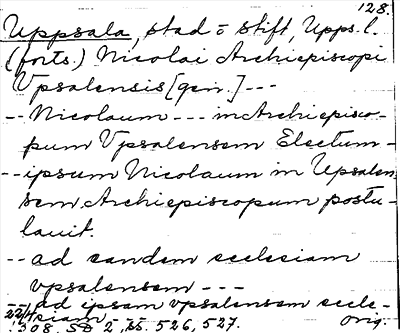 128.
Uppsala, stad o stift, Upps. l.
(forts.) Nicolai Archiepiscopi
Vpsalensis [gen.] ---
-- Nicolaum --- in Archiepisco-
pum Vpsalensem Electum -
-- ipsum Nicolaum in Upsalen
sem Archiepiscopum postu-
lauit.
-- ad eandem ecclesiam
vpsalensem ---
-- ad ipsam vpsalensem eccle-
siam --
22/4 1308. SD 2, ss. 526, 527. Orig.